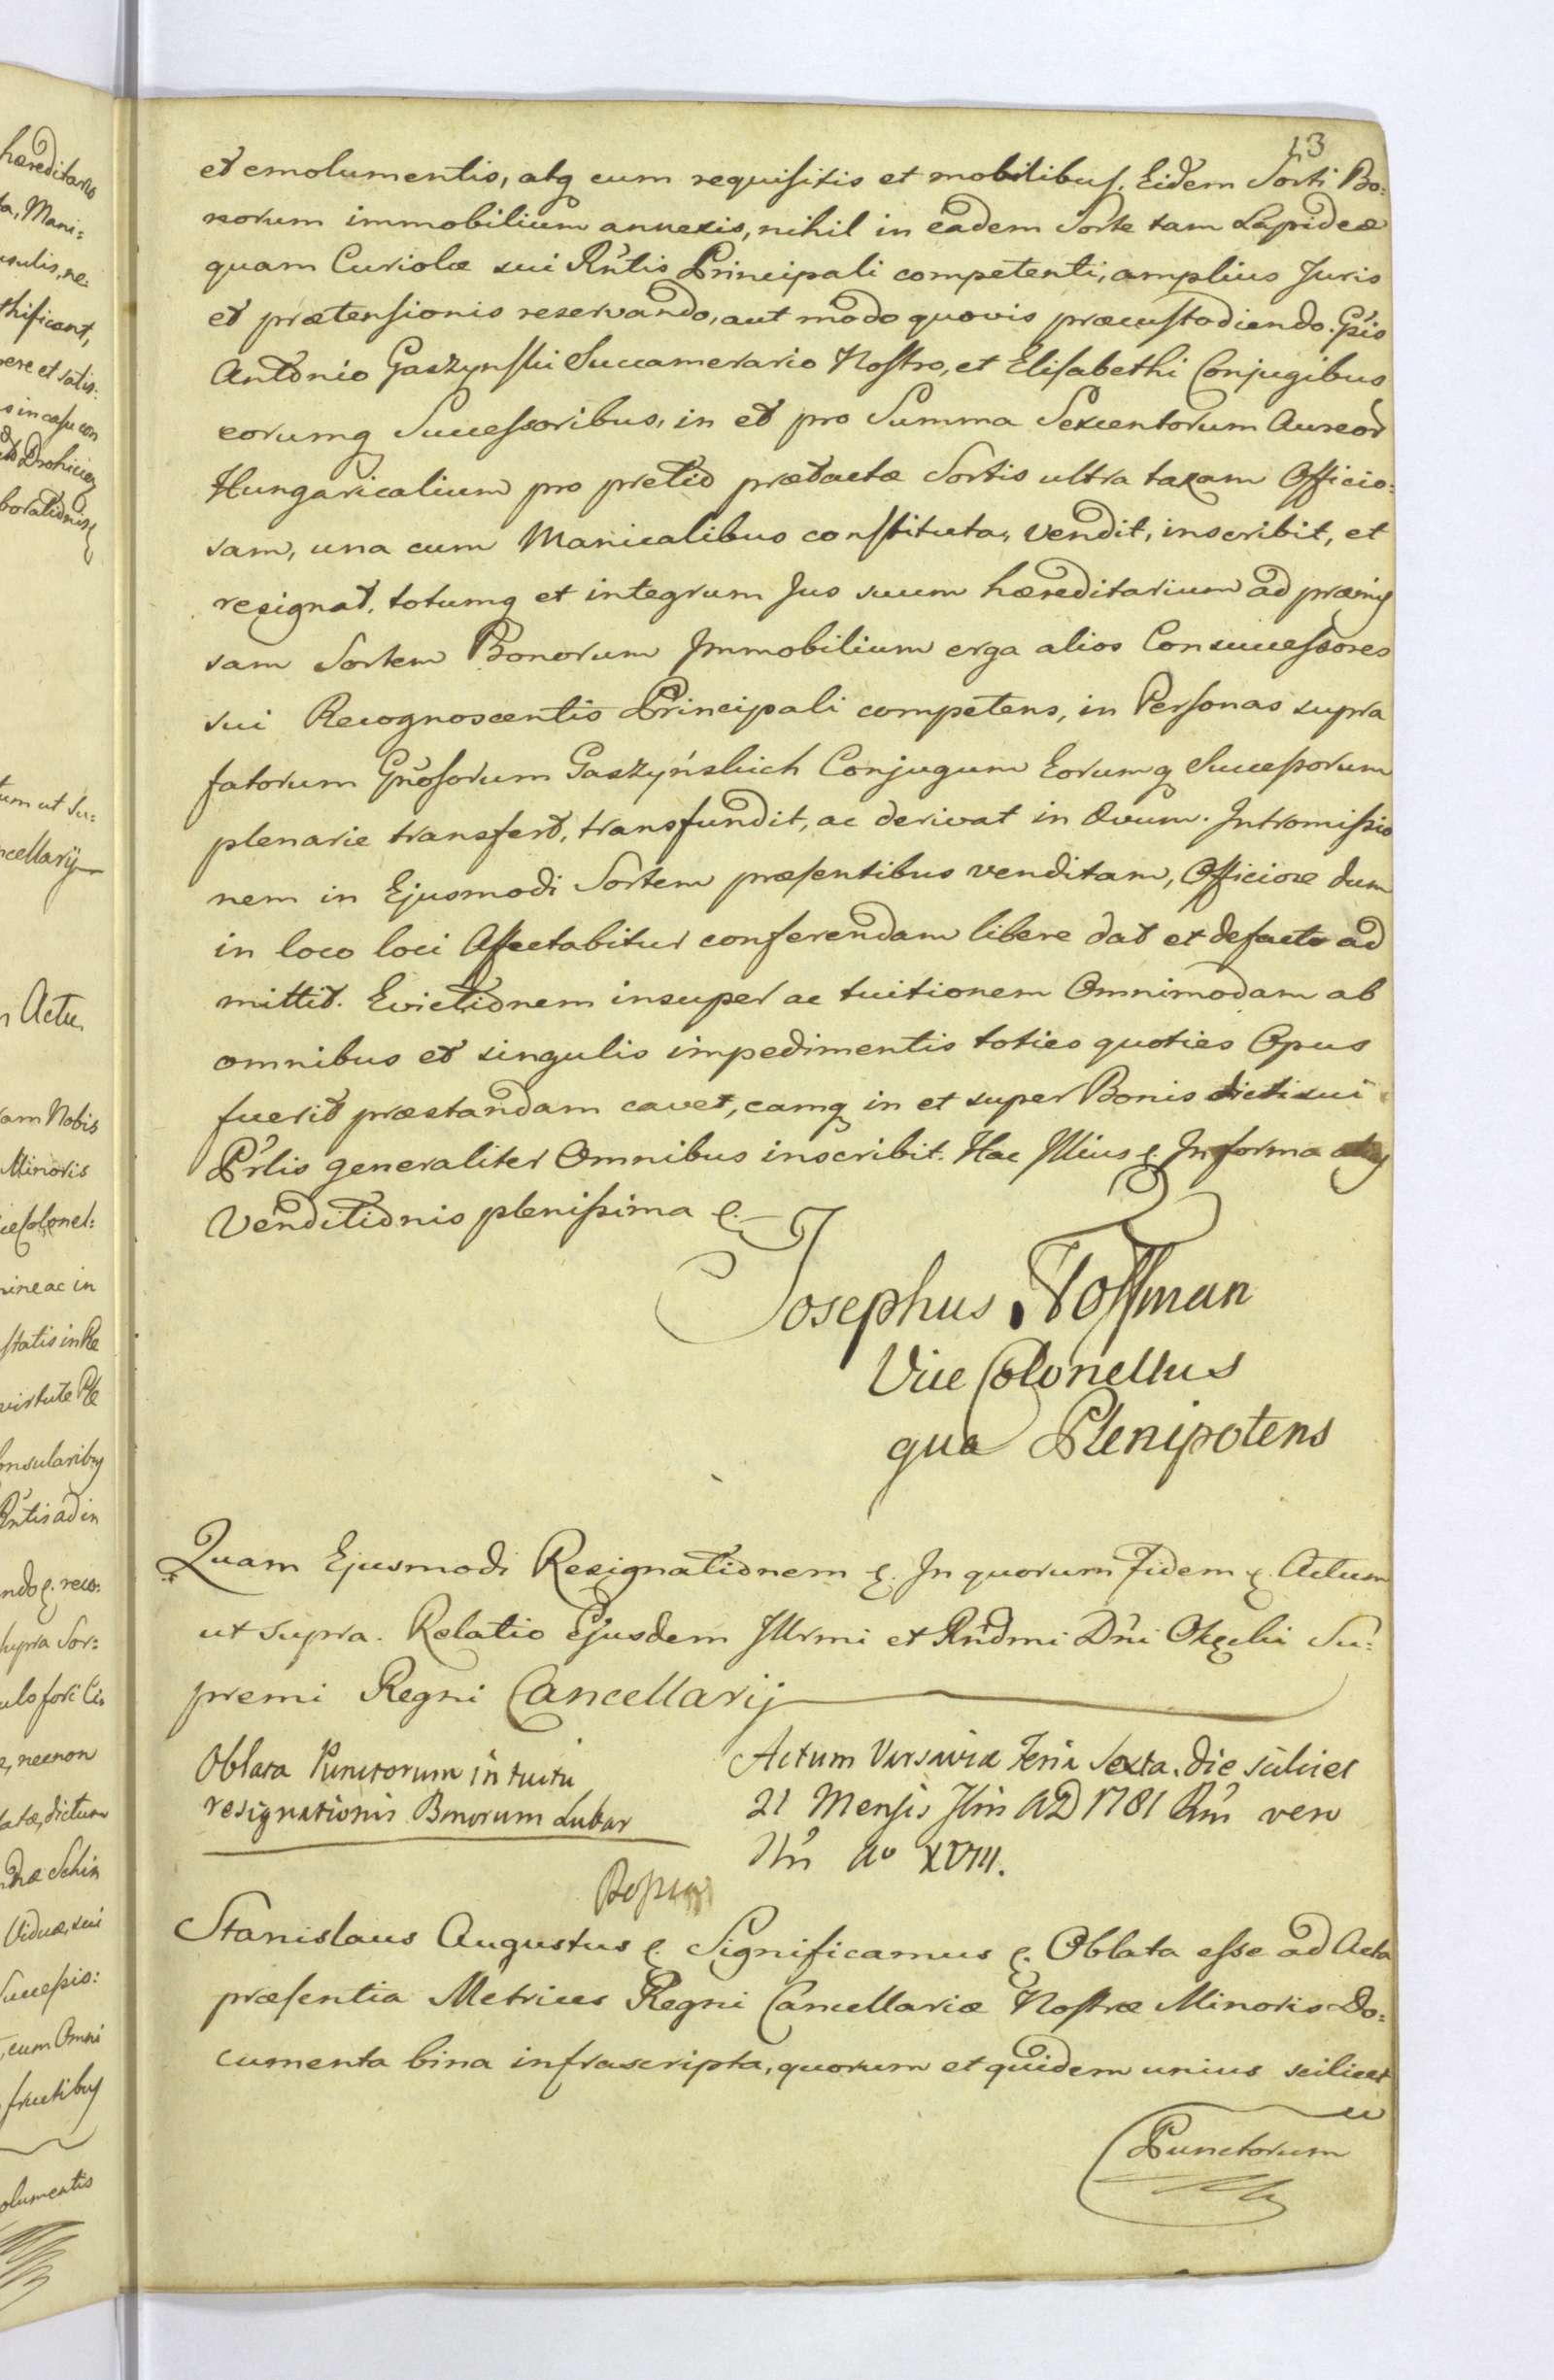 13
et emolumentis, atq cum requisitis et mobilibus, Eidem Sorti Bo:
norum immobilium annexis, nihil in eadem Sorte tam Lapideæ
quam Curiolæ sui Rntis Principali competenti, amplius Juris
et prætensionis reservando, aut modo quovis præcustodiendo. Gsis
Antonio Gaszynski Succamerario Nostro, et Elisabethi Conjugibus
eorumq Successoribus, in et pro Summa Sexcentorum Aureor
Hungaricalium pro pretio prætactæ Sortis ultra taxam Officio:
sam, una cum Manicalibus constituta, vendit, inscribit, et
resignat, totumq et integrum Jus suum hæreditarium ad præmis
sam Sortem Bonorum Immobilium erga alios Consuccessores
sui Recognoscentis Principali competens, in Personas supra
fatorum Gnosorum Gaszyńskich Conjugum Eorumq Successorum
plenarie transfert, transfundit, ac derivat in Ævum. Intromissio
nem in Ejusmodi Sortem præsentibus venditam, Officiose dum
in loco loci Affectabitur conferendam libere dat et defacto ad
mittit. Evictionem insuper ac tuitionem Omnimodam ab
omnibus et singulis impedimentis toties quoties Opus
fuerit præstandam cavet, eamq in et super Bonis dicti sui
Prlis generaliter Omnibus inscribit. Hac Illius e. In forma
Venditionis plenissima e.
Josephus Hoffman
Vice Colonellus
qua Plenipotens
Quam Ejusmodi Resignationem e. In quorum Fidem e. Actum
ut supra. Relatio Ejusdem Illrmi et Rndmi Dni Okęcki Su:
premi Regni Cancellarij
Oblata Punctorum intuitu
resignationis Bonorum Lubar
Actum Varsaviæ Feria Sexta, die scilicet
21 Mensis Xbris AD 1781 Rni vero
Nri Ao XVIII.
Stanislaus Augustus e. Significamus e. Oblata esse ad Acta
præsentia Metrices Regni Cancellariæ Nostræ Minoris Do:
cumenta bina infrascripta, quorum et quidem unius scilicet
Punctorum
hæreditario
ta, Mani:
nsulis, ne:
thificant,
ere et satis:
s in casu con
Drohicien
borationis
um ut Su:
ncellarij
n Actu,
ram Nobis
Minoris
ice Colonel:
mine ac in
statis in Re
virtute Ple
onsularibus
Rntis ad in
ndo e. reco:
supra Sor:
ulo fori Ci
e, necnon
atæ, dictum
Viduæ, sui
Successio:
, cum Omni
fructibus
olumentis